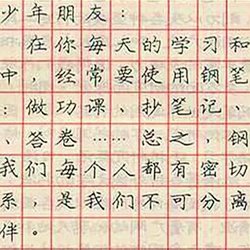 少年朋友：
在你每天的学习和
中，经常要使用钢笔
：做功课、抄笔记、
、答卷……总之，钢
我们每个人都有密切
系，是我们不可分离
伴。